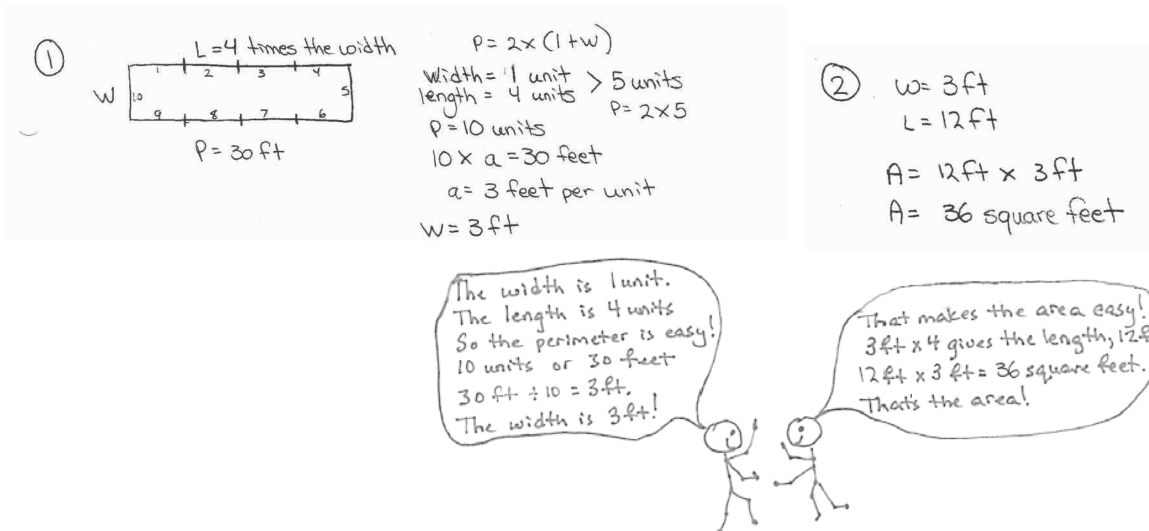 ①
L=4 times the width
W
1 2 3 4
10 5
9 8 7 6
P= 30 ft
P= 2 x (l+w)
width = 1 unit > 5 units
length = 4 units
P= 2 x 5
P= 10 units
10 x a = 30 feet
a= 3 feet per unit
W = 3 ft
②
W= 3ft
L = 12ft
A= 12ft x 3ft
A= 36 square feet
The width is 1 unit.
The length is 4 units
So the perimeter is easy!
10 units or 30 feet
30 ft ÷ 10 = 3ft.
The width is 3ft!
That makes the area easy!
3ft x 4 gives the length, 12f
12ft x 3 ft = 36 square feet.
That's the area!